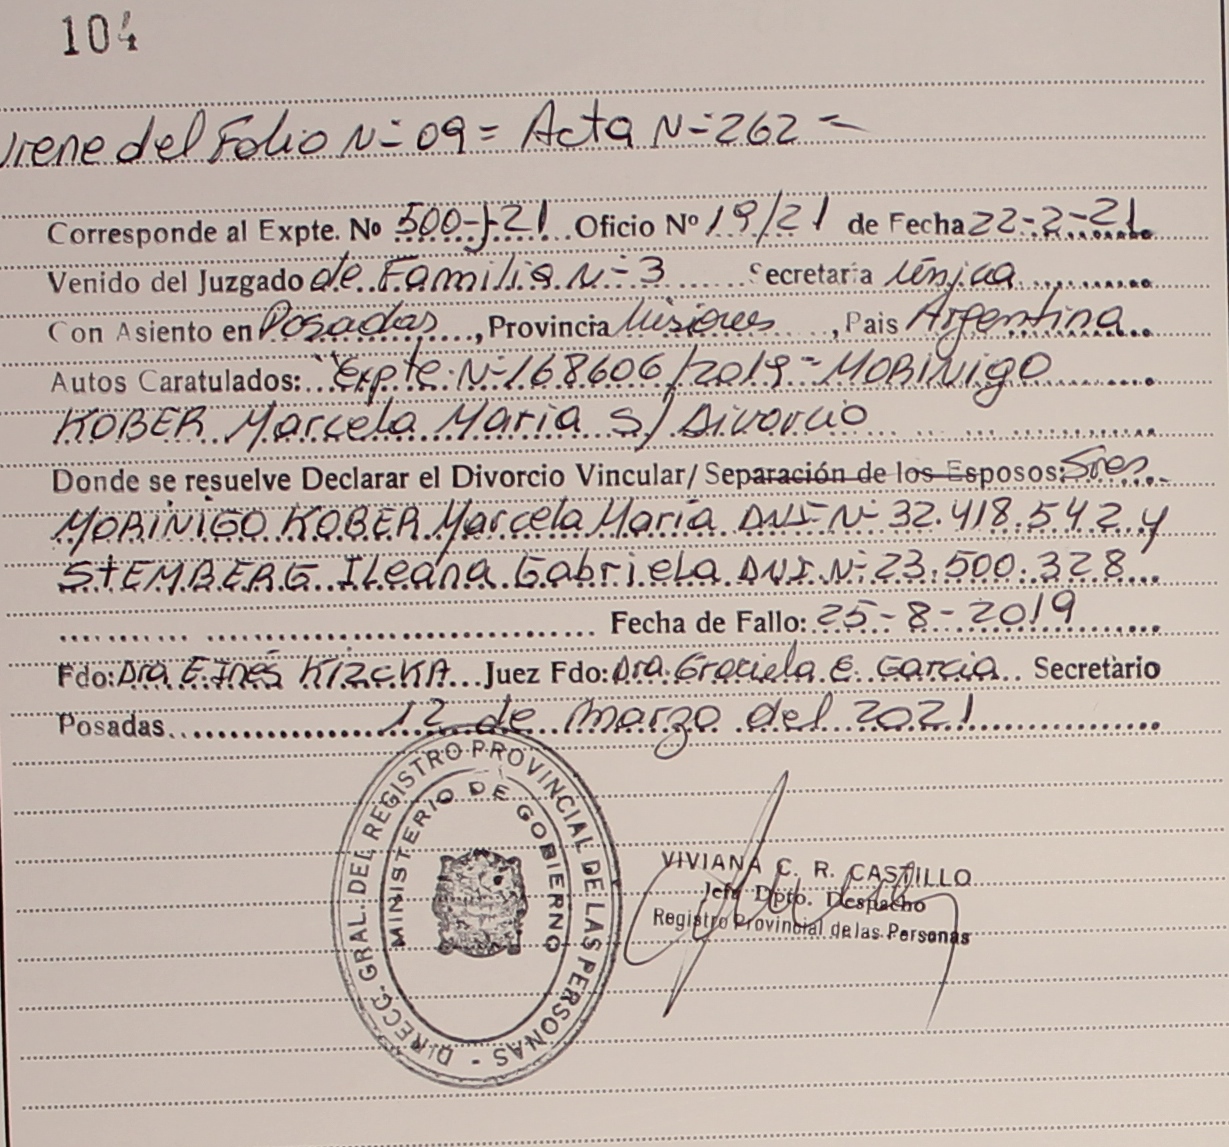 104
Viene del Folio N- 09 = Acta N- 262 =
Corresponde al Expte. No 500-J-21 Oficio Nº 19/21 de Fecha 22-2-21
Venido del Juzgado de Familia N- 3 Secretaria Única
Con Asiento en Posadas, Provincia Misiones, Pais Argentina
Autos Caratulados: "Expte. N- 168606/2019 - MORINIGO
KOBER Marcela Maria S/ Divorcio
Donde se resuelve Declarar el Divorcio Vincular/ Separación de los Esposos: Sres
MORINIGO KOBER Marcela Maria DNI N- 32.418.542 y
StEMBERG ILeana Gabriela DNI. N- 23.500.328
Fecha de Fallo: 25-8-2019
Fdo: Dra E. Inés KIZCKA Juez Fdo: Dra. Graciela E. Garcia Secretario
Posadas 12 de Marzo del 2021
DIRECC. GRAL. DEL REGISTRO PROVINCIAL DE LAS PERSONAS -
MINISTERIO DE GOBIERNO
VIVIANA C. R. CASTILLO
Jefa Dpto. Despacho
Registro Provincial de las Personas